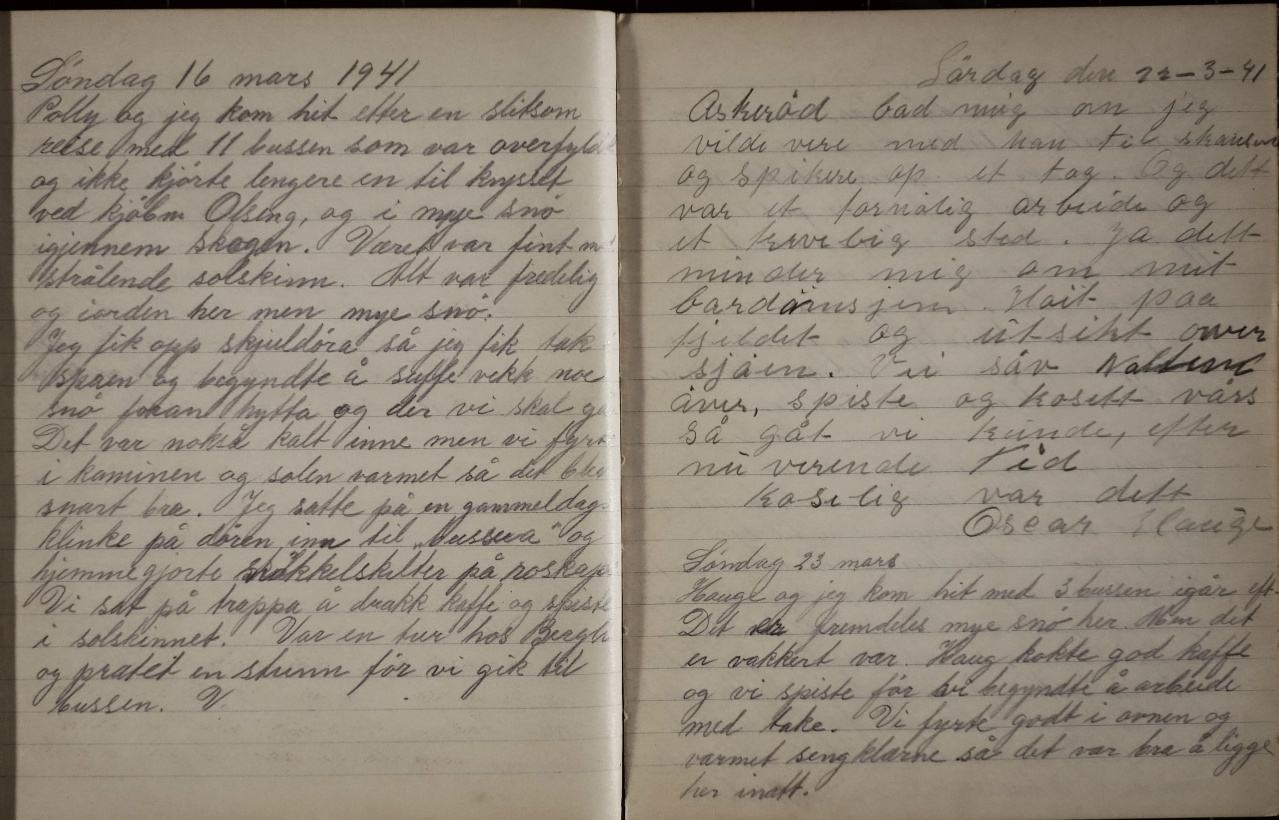 Søndag 16 mars 1941
Polly og jeg kom hit etter en slitsom
reise med 11 bussen som var overfyldt
og ikke kjørte lengere en til krysset
ved kjøbm Olseng, og i mye snø
igjennem skogen. Været var fint
strålende solskinn. Alt var fredelig
og iorden her men mye snø.
Jeg fik opp skjuldöra så jeg fik tak
spaen og begyndte å suffe vekk noe
snö foran hytta og der vi skal
Det var nokså kalt inne men vi
i kaminen og solen varmet så det ble
snart bra. Jeg satte på en gammeldags
klinke på dören inn til "busseva" og
hjemmegjorte på
Vi sat på trappa å drakk kaffe og spiste
i solskinnet. Var en tur hos
og pratet en stunn för vi gik til
bussen. V.
Lördag den 22-3-41
Askeröd bad mig om jeg
vilde vere med han til
og spikere op et tag. Og dett
var et fornölig arbeide og
et sted. Ja dett
minder mig om mit
Höit paa
fjeldet og utsikt over
sjöen. Vi såv
över, spiste og kosett vårs
så gåt vi kunde, efter
nu verende tid
Koselig var dett
Oscar Hauge
Søndag 23 mars
Hauge og jeg kom hit med 3 bussen igår eft.
Det er fremdeles mye snö her. Men det
er vakkert vær. Haug kokte god kaffe
og vi spiste før vi begyndte å arbeide
med take. Vi fyrte godt i ovnen og
varmet sengklærne så det var bra å ligge
her inatt.